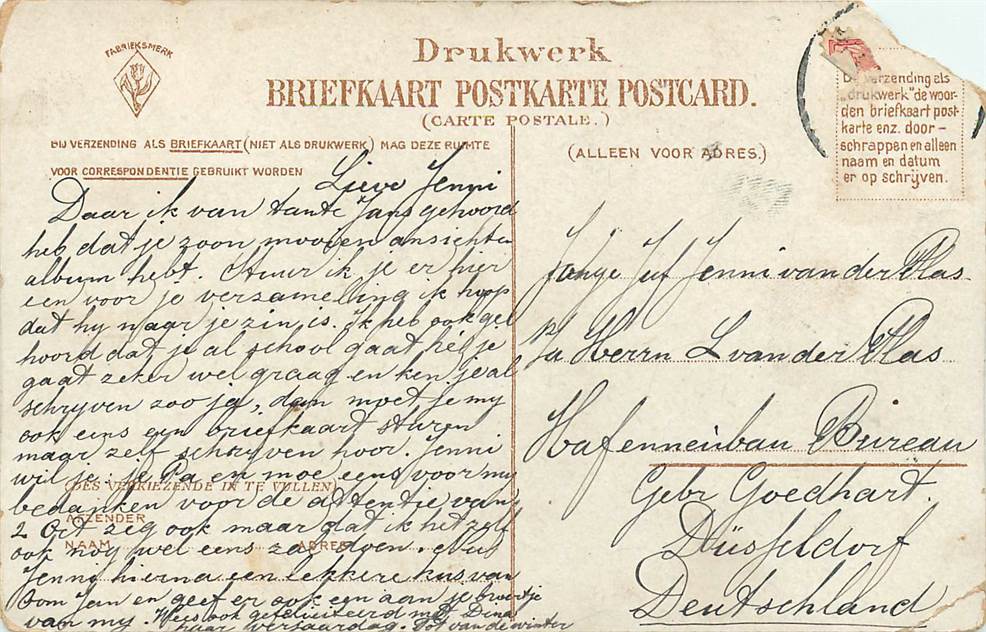 FABRIEKSMERK
Drukwerk
BRIEFKAART POSTKARTE POSTCARD.
(CARTE POSTALE.)
BIJ VERZENDING ALS BRIEFKAART (NIET ALS DRUKWERK) MAG DEZE RUIMTE
VOOR CORRESPONDENTIE GEBRUIKT WORDEN
(ALLEEN VOOR ADRES.)
De verzending als
"drukwerk" de woor-
den briefkaart post-
karte enz. door-
schrappen en alleen
naam en datum
er op schrijven.
Lieve Jenni
Daar ik van tante Jans gehoord
heb dat je zoon mooien ansichten
album hebt. Stuur ik je er hier
een voor je verzamelling ik hoop
dat hy naar je zin is. Ik heb ook ge
hoord dat je al school gaat hé je
gaat zeker wel graag en ken je al
schryven zoo ja, dan moet je my
ook eens een briefkaart sturen
maar zelf schryven hoor. Jenni
wil je je Pa en moe eens voor my
(DES VERKIEZENDE IN TE VULLEN)
bedanken voor de attentie van
AFZENDER
2 Oct zeg ook maar dat ik het zelf
NAAM ADRES
ook nog wel eens zal doen. Nu
Jenni hierna een lekkere kus van
Oom Jan en geef er ook een aan je broertje
van my. Wees ook gefeliciteerd met Dina
haar verjaardag. Tot van de winter
Jonge Juf Jenni van der Plas
p/a Herrn L van der Plas
Hafenneubau Bureau
Gebr Goedhart.
Düsseldorf
Deutschland